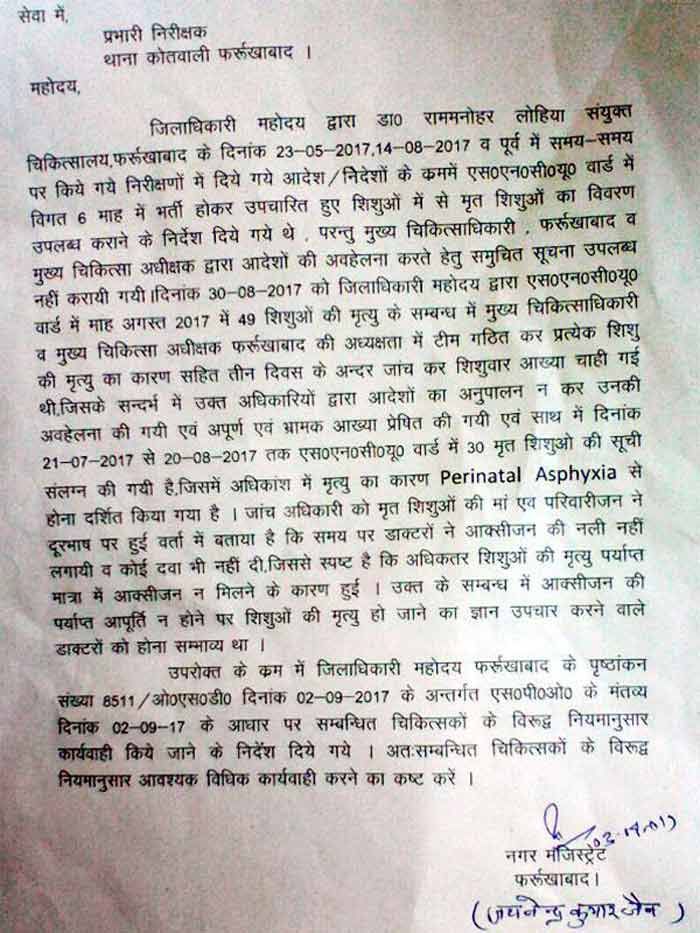 सेवा में,
प्रभारी निरीक्षक
थाना कोतवाली फर्रूखाबाद ।
महोदय,
जिलाधिकारी महोदय द्वारा डा0 राममनोहर लोहिया संयुक्त
चिकित्सालय,फर्रूखाबाद के दिनांक 23-05-2017,14-08-2017 व पूर्व में समय-समय
पर किये गये निरीक्षणों में दिये गये आदेश/निदेशों के क्रममें एस0एन0सी0यू0 वार्ड में
विगत 6 माह में भर्ती होकर उपचारित हुए शिशुओं में से मृत शिशुओं का विवरण
उपलब्ध कराने के निर्देश दिये गये थे , परन्तु मुख्य चिकित्साधिकारी , फर्रूखाबाद व
मुख्य चिकित्सा अधीक्षक द्वारा आदेशों की अवहेलना करते हेतु समुचित सूचना उपलब्ध
नहीं करायी गयी।दिनांक 30-08-2017 को जिलाधिकारी महोदय द्वारा एस0एन0सी0यू0
वार्ड में माह अगस्त 2017 में 49 शिशुओं की मृत्यु के सम्बन्ध में मुख्य चिकित्साधिकारी
व मुख्य चिकित्सा अधीक्षक फर्रूखाबाद की अध्यक्षता में टीम गठित कर प्रत्येक शिशु
की मृत्यु का कारण सहित तीन दिवस के अन्दर जांच कर शिशुवार आख्या चाही गई
थी,जिसके सन्दर्भ में उक्त अधिकारियों द्वारा आदेशों का अनुपालन न कर उनकी
अवहेलना की गयी एवं अपूर्ण एवं भ्रामक आख्या प्रेषित की गयी एवं साथ में दिनांक
21-07-2017 से 20-08-2017 तक एस0एन0सी0यू0 वार्ड में 30 मृत शिशुओ की सूची
संलग्न की गयी है,जिसमें अधिकांश में मृत्यु का कारण Perinatal Asphyxia से
होना दर्शित किया गया है । जांच अधिकारी को मृत शिशुओं की मां एव परिवारीजन ने
दूरभाष पर हुई वर्ता में बताया है कि समय पर डाक्टरों ने आक्सीजन की नली नहीं
लगायी व कोई दवा भी नहीं दी,जिससे स्पष्ट है कि अधिकतर शिशुओं की मृत्यु पर्याप्त
मात्रा में आक्सीजन न मिलने के कारण हुई । उक्त के सम्बन्ध में आक्सीजन की
पर्याप्त आपूर्ति न होने पर शिशुओं की मृत्यु हो जाने का ज्ञान उपचार करने वाले
डाक्टरों को होना सम्भाव्य था ।
उपरोक्त के क्रम में जिलाधिकारी महोदय फर्रूखाबाद के पृष्ठांकन
संख्या 8511/ओ0एस0डी0 दिनांक 02-09-2017 के अन्तर्गत एस0पी0ओ0 के मंतव्य
दिनांक 02-09-17 के आधार पर सम्बन्धित चिकित्सकों के विरूद्व नियमानुसार
कार्यवाही किये जाने के निर्देश दिये गये । अतःसम्बन्धित चिकित्सकों के विरूद्व
नियमानुसार आवश्यक विधिक कार्यवाही करने का कष्ट करें ।
नगर मजिस्ट्रेट
फर्रूखाबाद।
(जयनेन्द्र कुमार जैन)